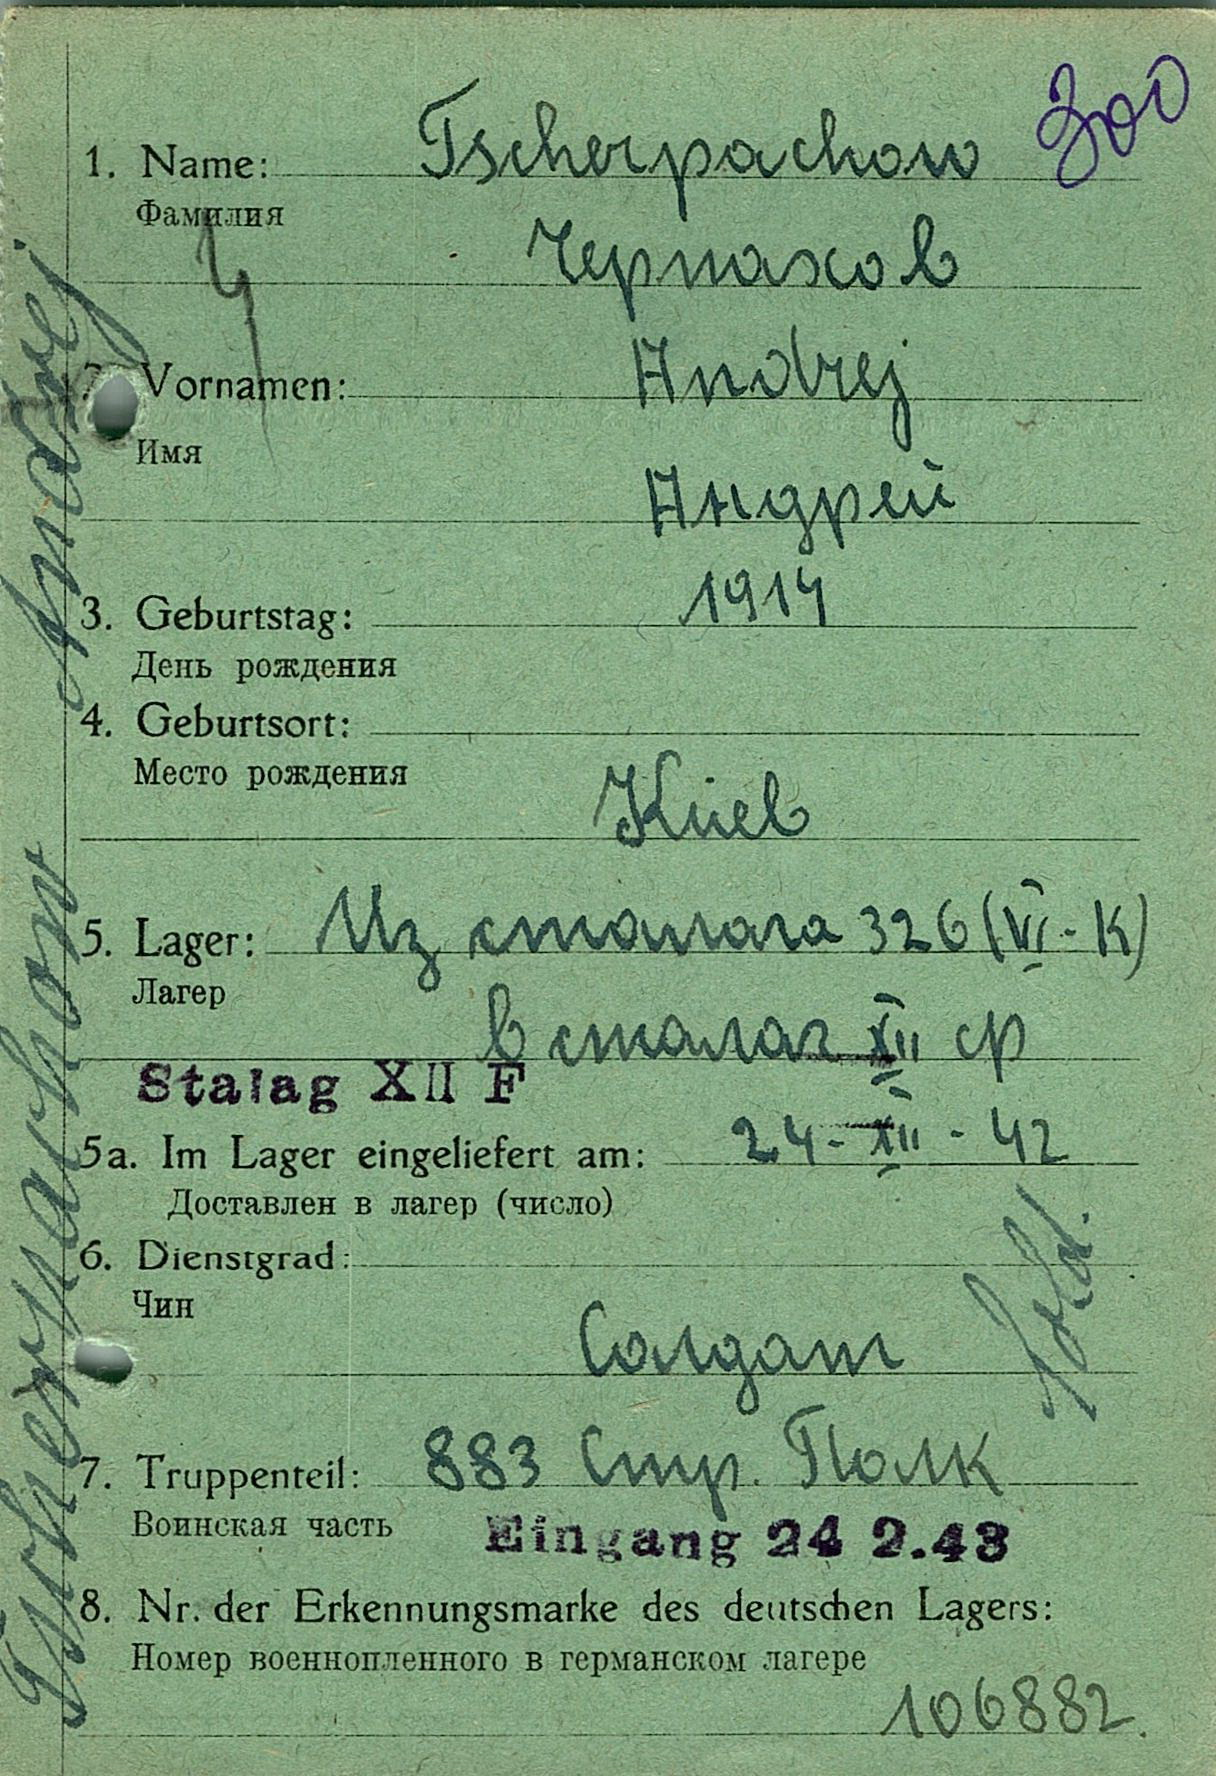 300
1. Name: Tscherpachow
Фамилия
Черпахов
4
2. Vornamen: Andrej
Имя
Андрей
3. Geburtstag: 1914
День рождения
4. Geburtsort:
Место рождения
Kиев
5. Lager: Из сталага 326 (VI-K)
Лагер
в сталаг XII ф
Stalag XII F
5a. Im Lager eingeliefert am: 24-XII-42
Доставлен в лагер (число)
6. Dienstgrad:
Чин
Солдат
Sold.
7. Truppenteil: 883 Стр. Полк
Воинская часть
Eingang 24 2.43
8. Nr. der Erkennungsmarke des deutschen Lagers:
Номер военнопленного в германском лагере
106882.
Tscherpachow Andrej